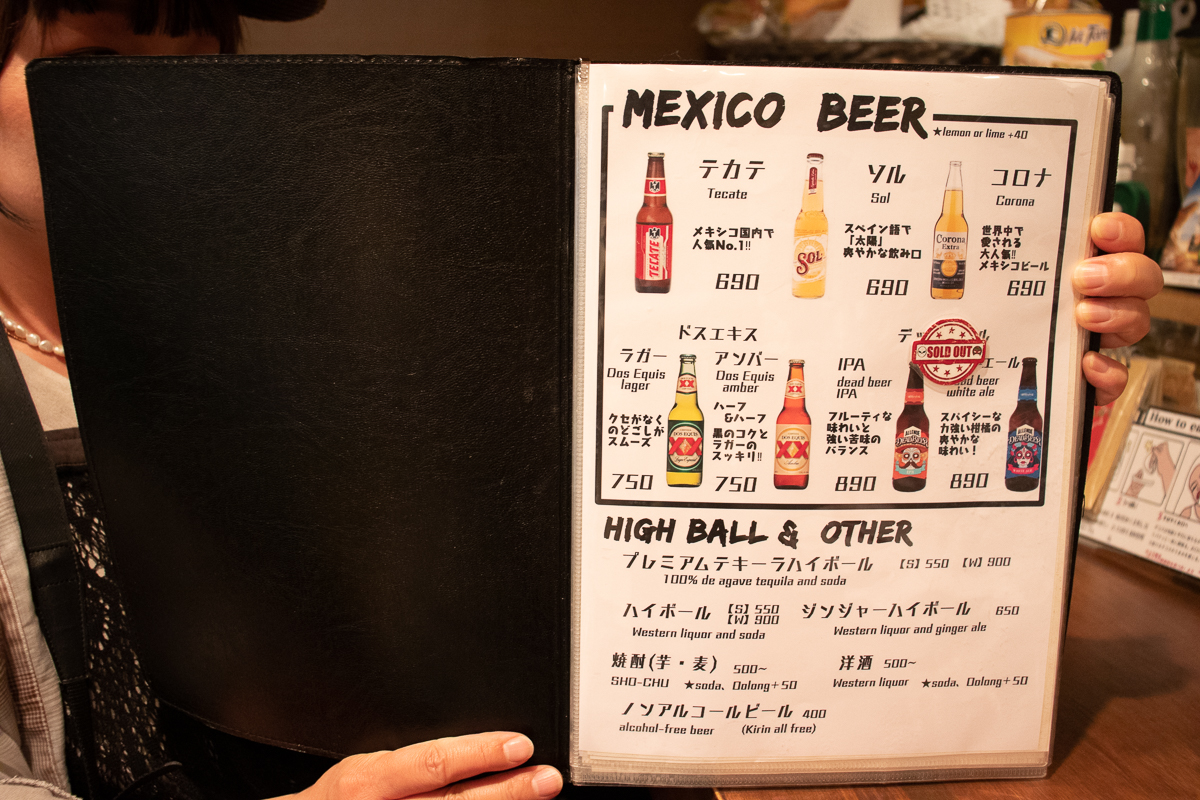 MEXICO BEER
★lemon or lime +40
テカテ
Tecate
メキシコ国内で
人気No.1!!
690
TECATE
ソル
Sol
スペイン語で
「太陽」
爽やかな飲み口
690
SOL
コロナ
Corona
世界中で
愛される
大人気!!
メキシコビール
690
Corona
Extra
ドスエキス
ラガー
Dos Equis
lager
クセがなく
のどごしが
スムーズ
750
XX
DOS EQUIS
XX
アンバー
Dos Equis
amber
ハーフ
&ハーフ
黒のコクと
ラガーの
スッキリ!!
750
DOS EQUIS
XX
SOLD OUT
IPA
dead beer
IPA
フルーティな
味わいと
強い苦味の
バランス
890
DEADBEER
エール
dead beer
white ale
スパイシーな
力強い柑橘の
爽やかな
味わい!
890
DEADBEER
HIGH BALL & OTHER
プレミアムテキーラハイボール 【S】550 【W】900
100% de agave tequila and soda
ハイボール 【S】550
【W】900
Western liquor and soda
ジンジャーハイボール 650
Western liquor and ginger ale
焼酎(芋・麦) 500~
SHO-CHU ★soda、Oolong+50
洋酒 500~
Western liquor ★soda、Oolong+50
ノンアルコールビール 400
alcohol-free beer (Kirin all free)
How to e